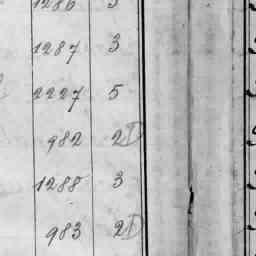 1286 3
1287 3
2227 5
982 2D
1288 3
983 2D